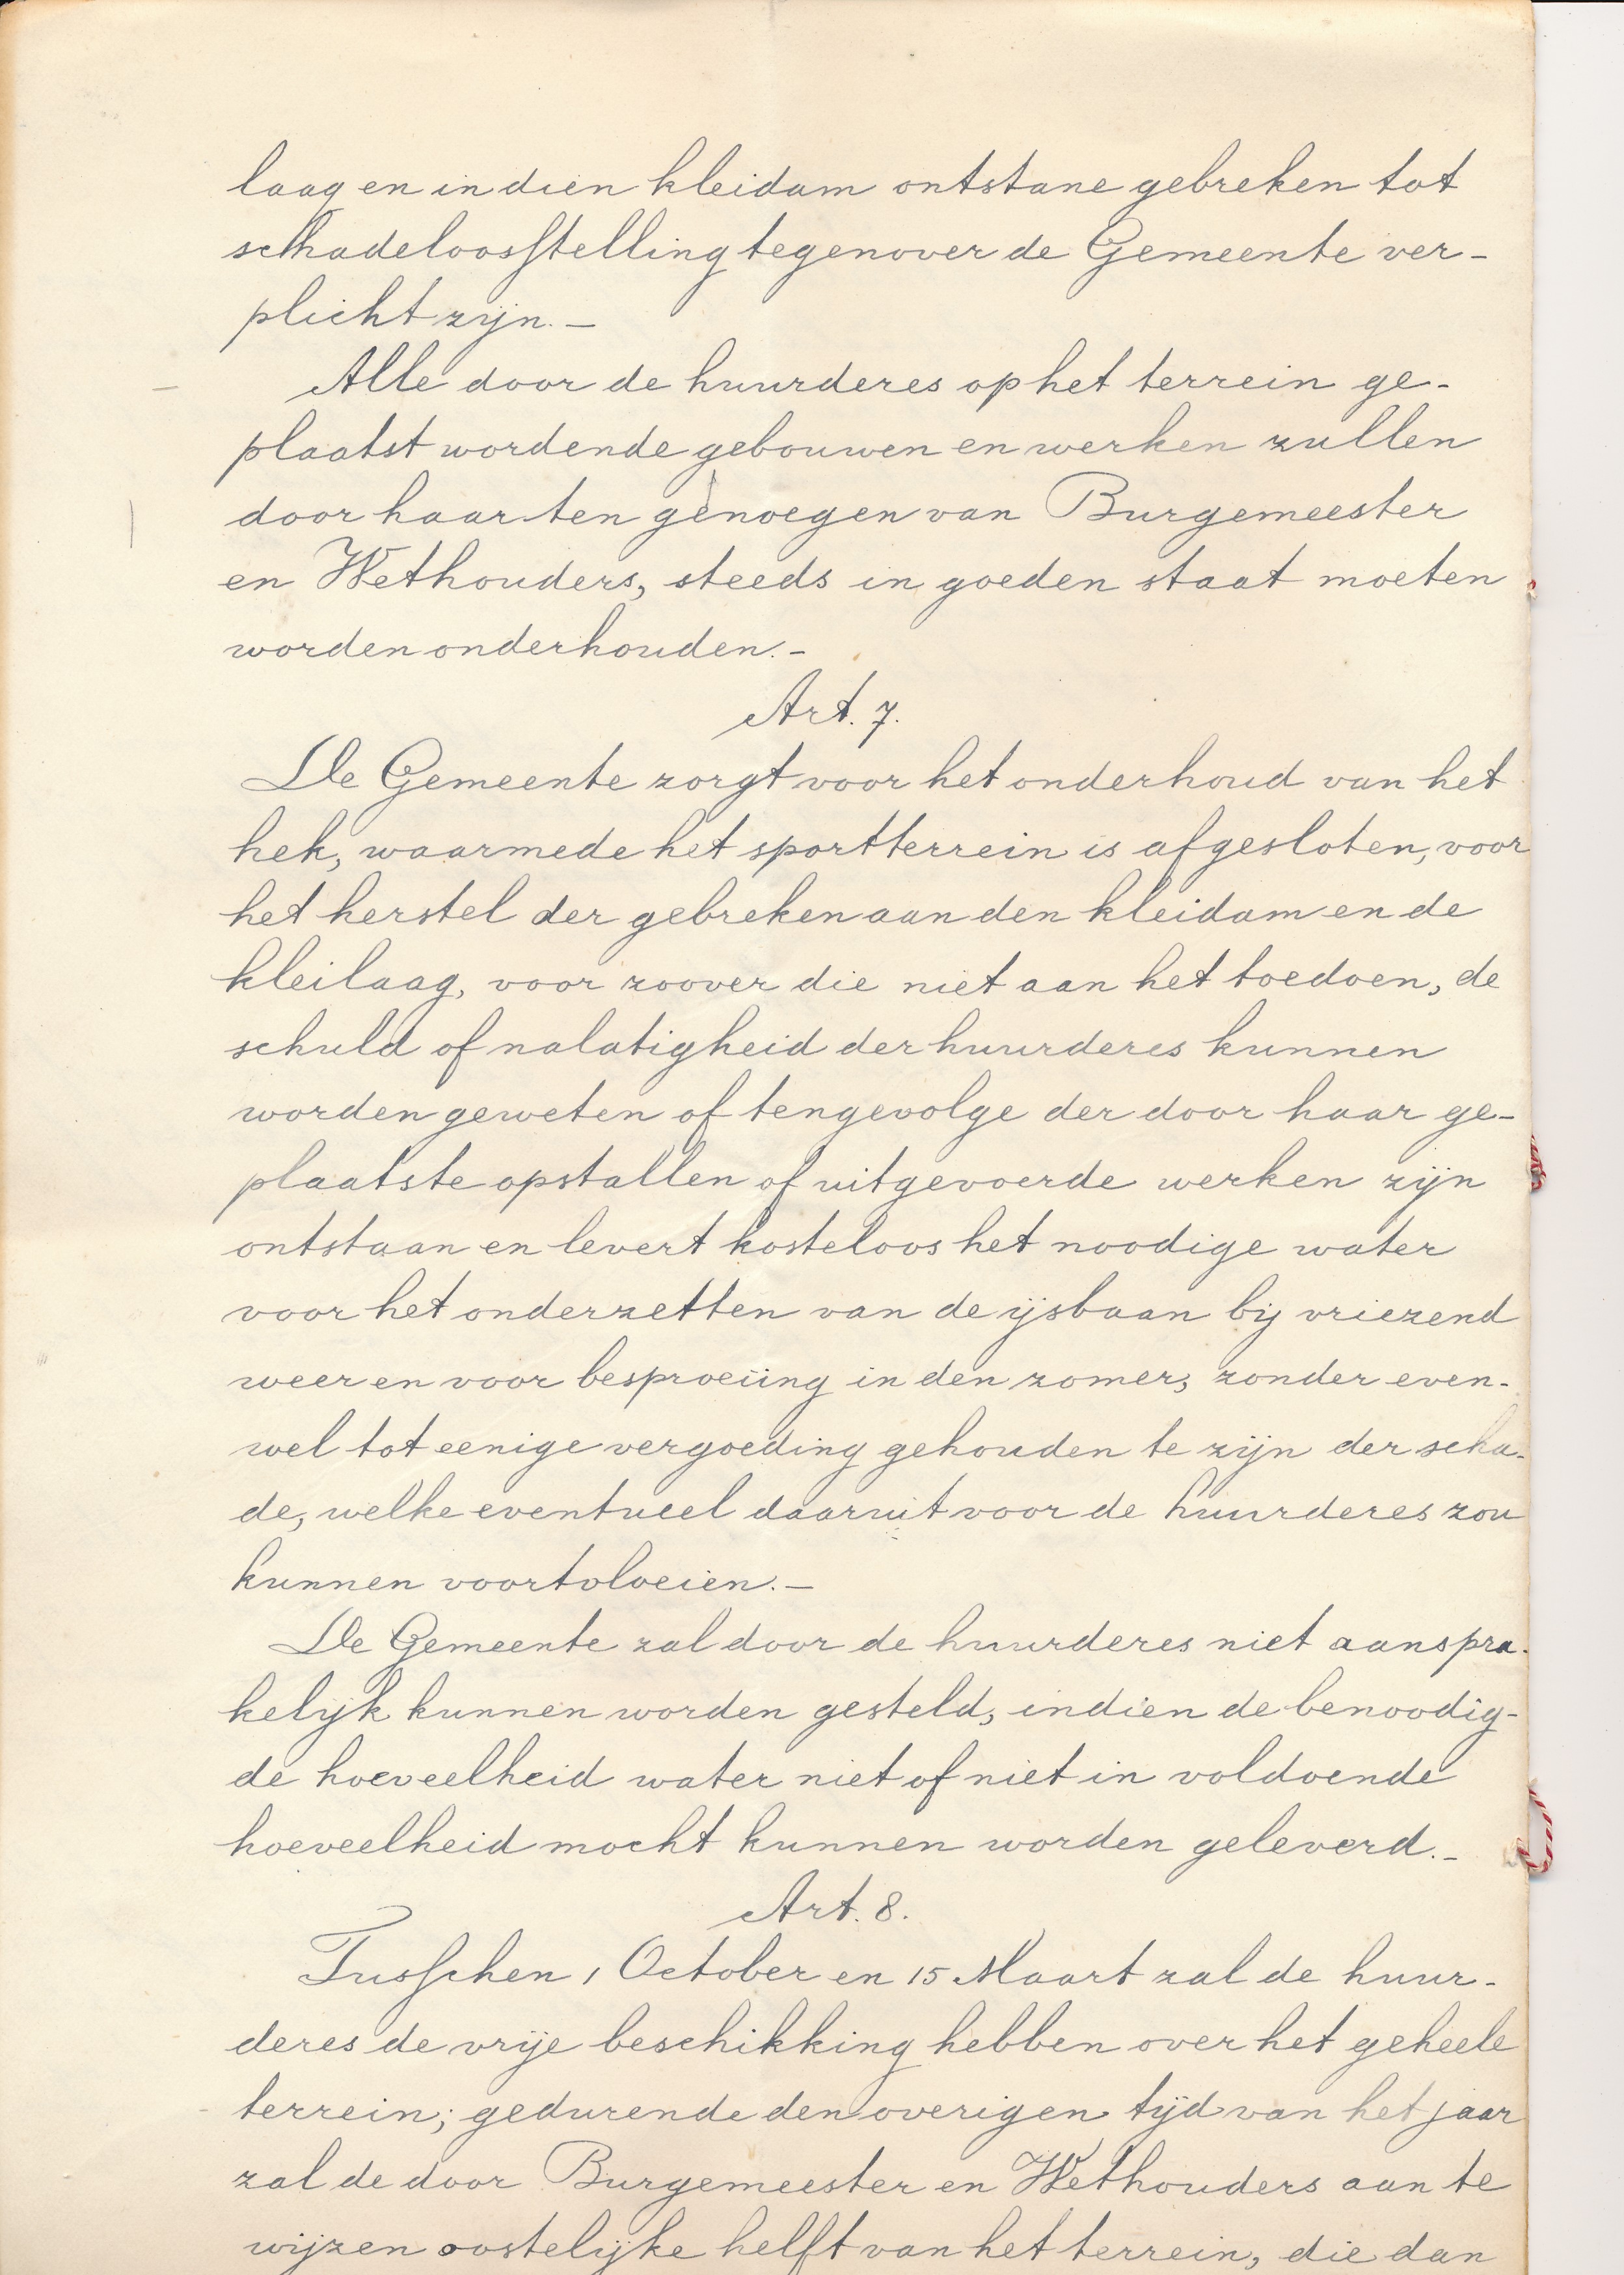 laag en in dien kleidam ontstane gebreken tot
schadeloosstelling tegenover de Gemeente ver-
plicht zijn. -
Alle door de huurderes op het terrein ge-
plaatst wordende gebouwen en werken zullen
door haar ten genoegen van Burgemeester
en Wethouders, steeds in goeden staat moeten
worden onderhouden. -
Art. 7.
De Gemeente zorgt voor het onderhoud van het
hek, waarmede het sportterrein is afgesloten, voor
het herstel der gebreken aan den kleidam en de
kleilaag, voor zoover die niet aan het toedoen, de
schuld of nalatigheid der huurderes kunnen
worden geweten of tengevolge der door haar ge-
plaatste opstallen of uitgevoerde werken zijn
ontstaan en levert kosteloos het noodige water
voor het onderzetten van de ijsbaan bij vriezend
weer en voor besproeiing in den zomer, zonder even-
wel tot eenige vergoeding gehouden te zijn der scha-
de, welke eventueel daaruit voor de huurderes zou
kunnen voortvloeien. -
De Gemeente zal door de huurderes niet aanspra-
kelijk kunnen worden gesteld, indien de benoodig-
de hoeveelheid water niet of niet in voldoende
hoeveelheid mocht kunnen worden geleverd. -
Art. 8.
Tusschen 1 October en 15 Maart zal de huur-
deres de vrije beschikking hebben over het geheele
terrein; gedurende den overigen tijd van het jaar
zal de door Burgemeester en Wethouders aan te
wijzen oostelijke helft van het terrein, die dan